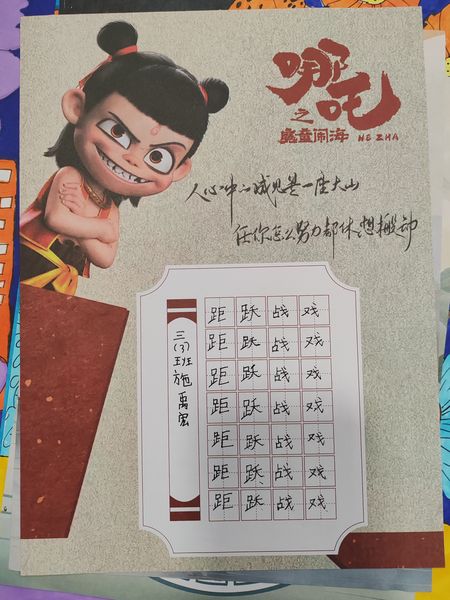 哪吒
之
魔童闹海
NE ZHA
人心中的成见是一座大山
任你怎么努力都休想搬动
三(3)班 施禹宏
距跃战戏
距跃战戏
距跃战戏
距跃战戏
距跃战戏
距跃战戏
距跃战戏